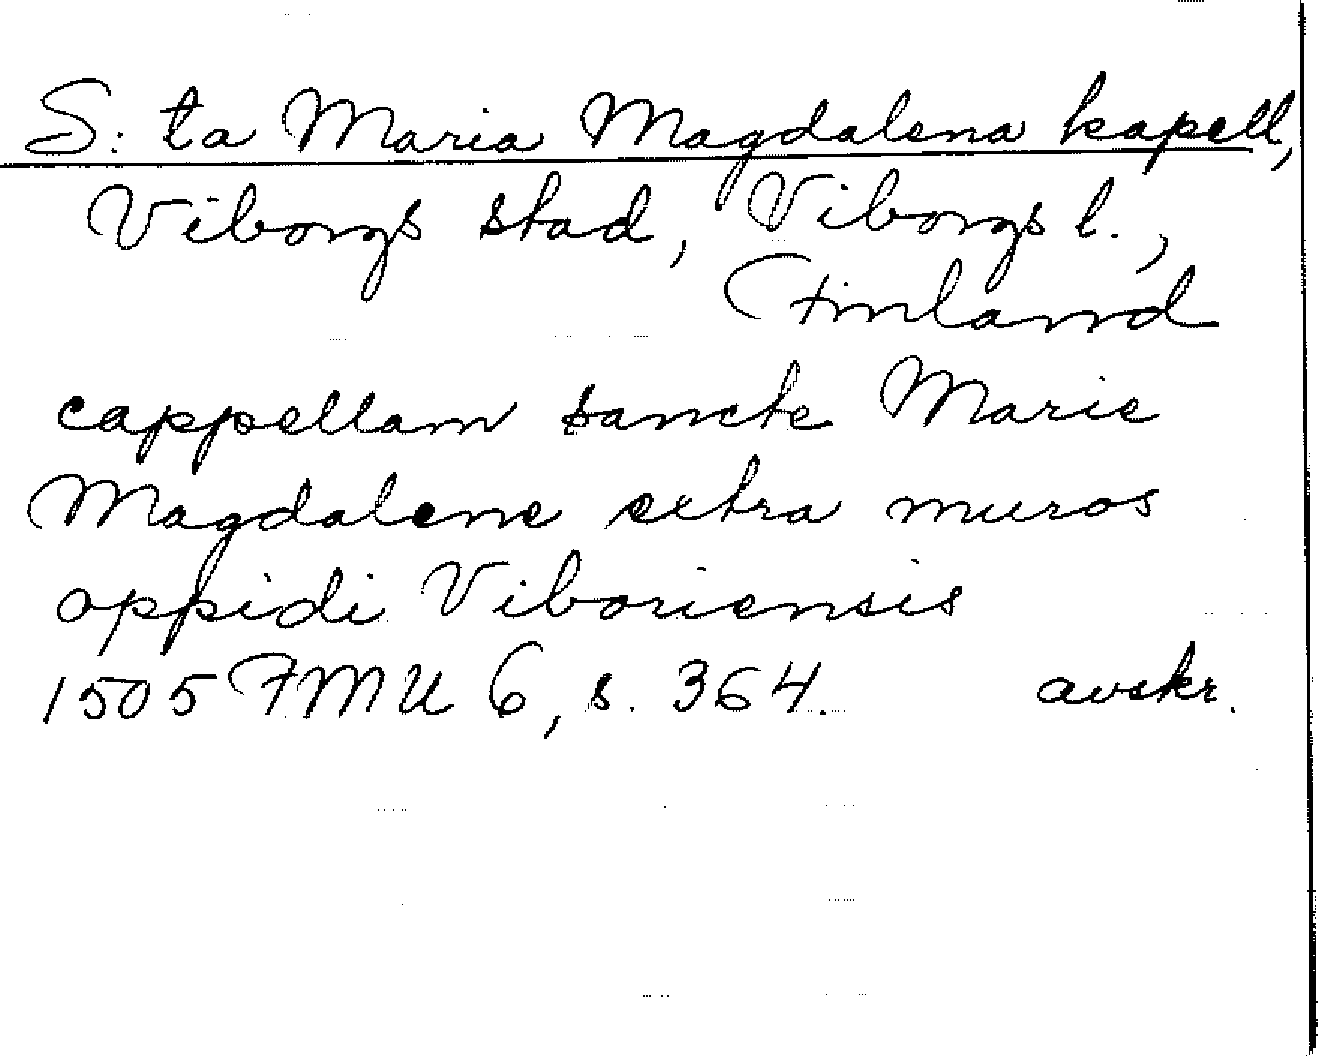 S:ta Maria Magdalena kapell,
Viborgs stad, Viborgs l.,
Finland
cappellam sancte Marie
Magdalene extra muros
oppidi Viboriensis
1505 FMU 6, s. 364. avskr.